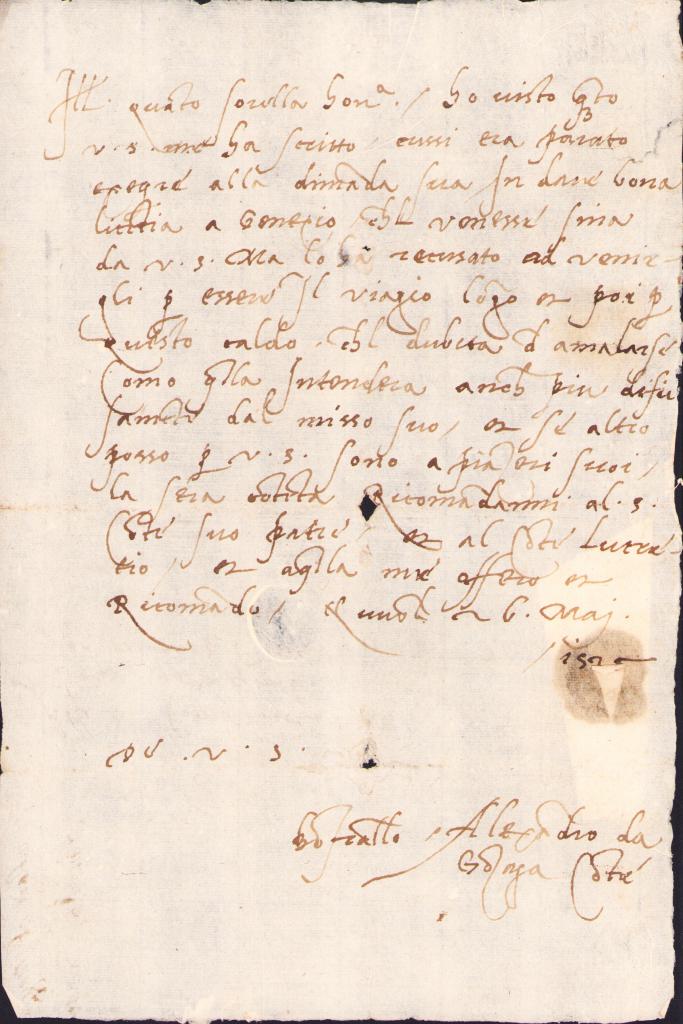 Ill. quãto sorella honª. / ho visto q̃to
v. s. me ha scritto / cussi era parato
exegre alla dimãda sua In dare bona
licẽtia a Genexio, ch̃l venesse sina
da v. s. Ma lo ha recusato ad venir-
gli p essere Il viagio lõgo et poi p
Questo caldo. ch̃l dubita d amalarse
Como q̃lla Intendera anch piu
dal misso suo, et se altro
posso p v. s. sono a piaceri suoi,
la sera cõtẽta Ricomãdarmi al. s.
Cõte suo patre, et al Cõte Lucre-
tio, et aq̃lla me offero et
Ricomãdo, 26. Maj.
De . v . s .
bõ fratello Alexãdro da
Gõzaga Cõte